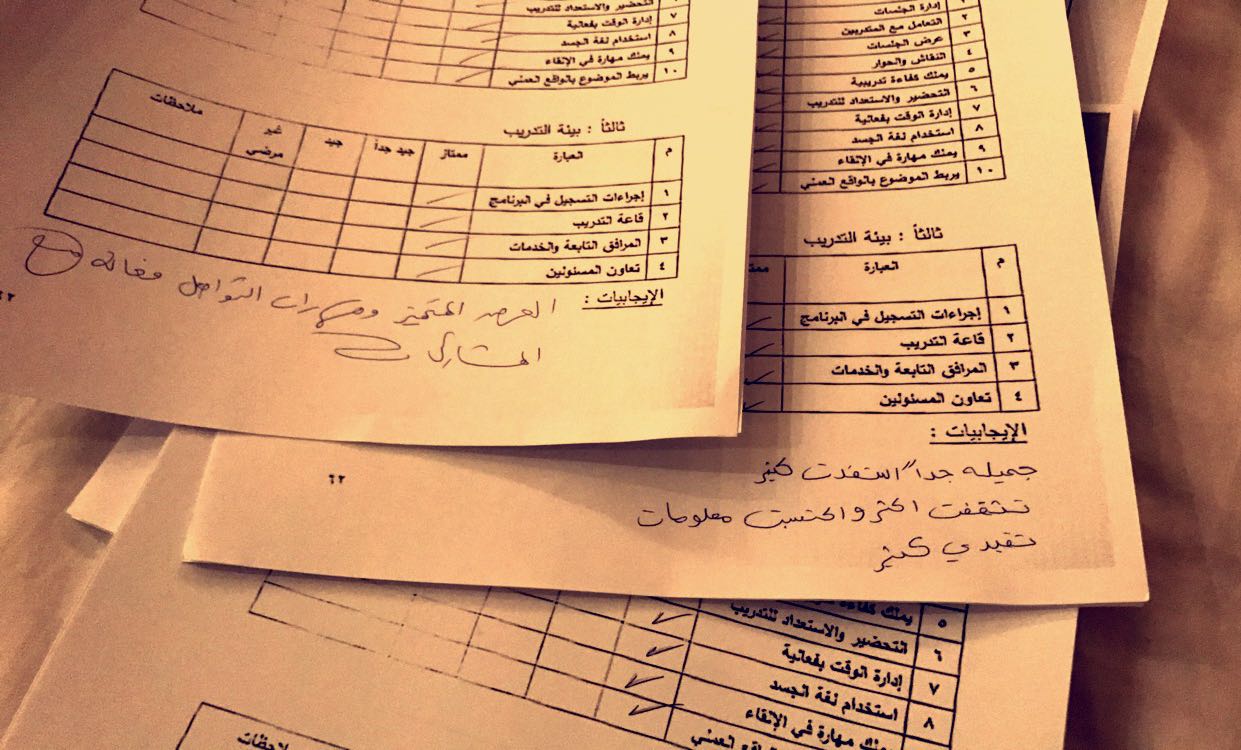 التحضير والاستعداد للتدريب
٧ إدارة الوقت بفعالية
٨ استخدام لغة الجسد
٩ يملك مهارة في الإلقاء
١٠ يربط الموضوع بالواقع العملي
ثالثاً : بيئة التدريب
م العبارة ممتاز جيد جداً جيد غير مرضي ملاحظات
١ إجراءات التسجيل في البرنامج
٢ قاعة التدريب
٣ المرافق التابعة والخدمات
٤ تعاون المسئولين
الإيجابيات : العرض المتميز ومهارات التواصل فعاله مع
المشاركات
إدارة الجلسات
٢ التعامل مع المتدربين
٣ عرض الجلسات
٤ النقاش والحوار
٥ يملك كفاءة تدريبية
٦ التحضير والاستعداد للتدريب
٧ إدارة الوقت بفعالية
٨ استخدام لغة الجسد
٩ يملك مهارة في الإلقاء
١٠ يربط الموضوع بالواقع العملي
ثالثاً : بيئة التدريب
م العبارة
١ إجراءات التسجيل في البرنامج
٢ قاعة التدريب
٣ المرافق التابعة والخدمات
٤ تعاون المسئولين
الإيجابيات :
جميله جداً استفدت كثير
تثقفت اكثر واكتسبت معلومات
تفيدي كثير
٦٢
٥ يملك كفاءة
٦ التحضير والاستعداد للتدريب
٧ إدارة الوقت بفعالية
٨ استخدام لغة الجسد
يملك مهارة في الإلقاء
بالواقع العملي
ملاحظات